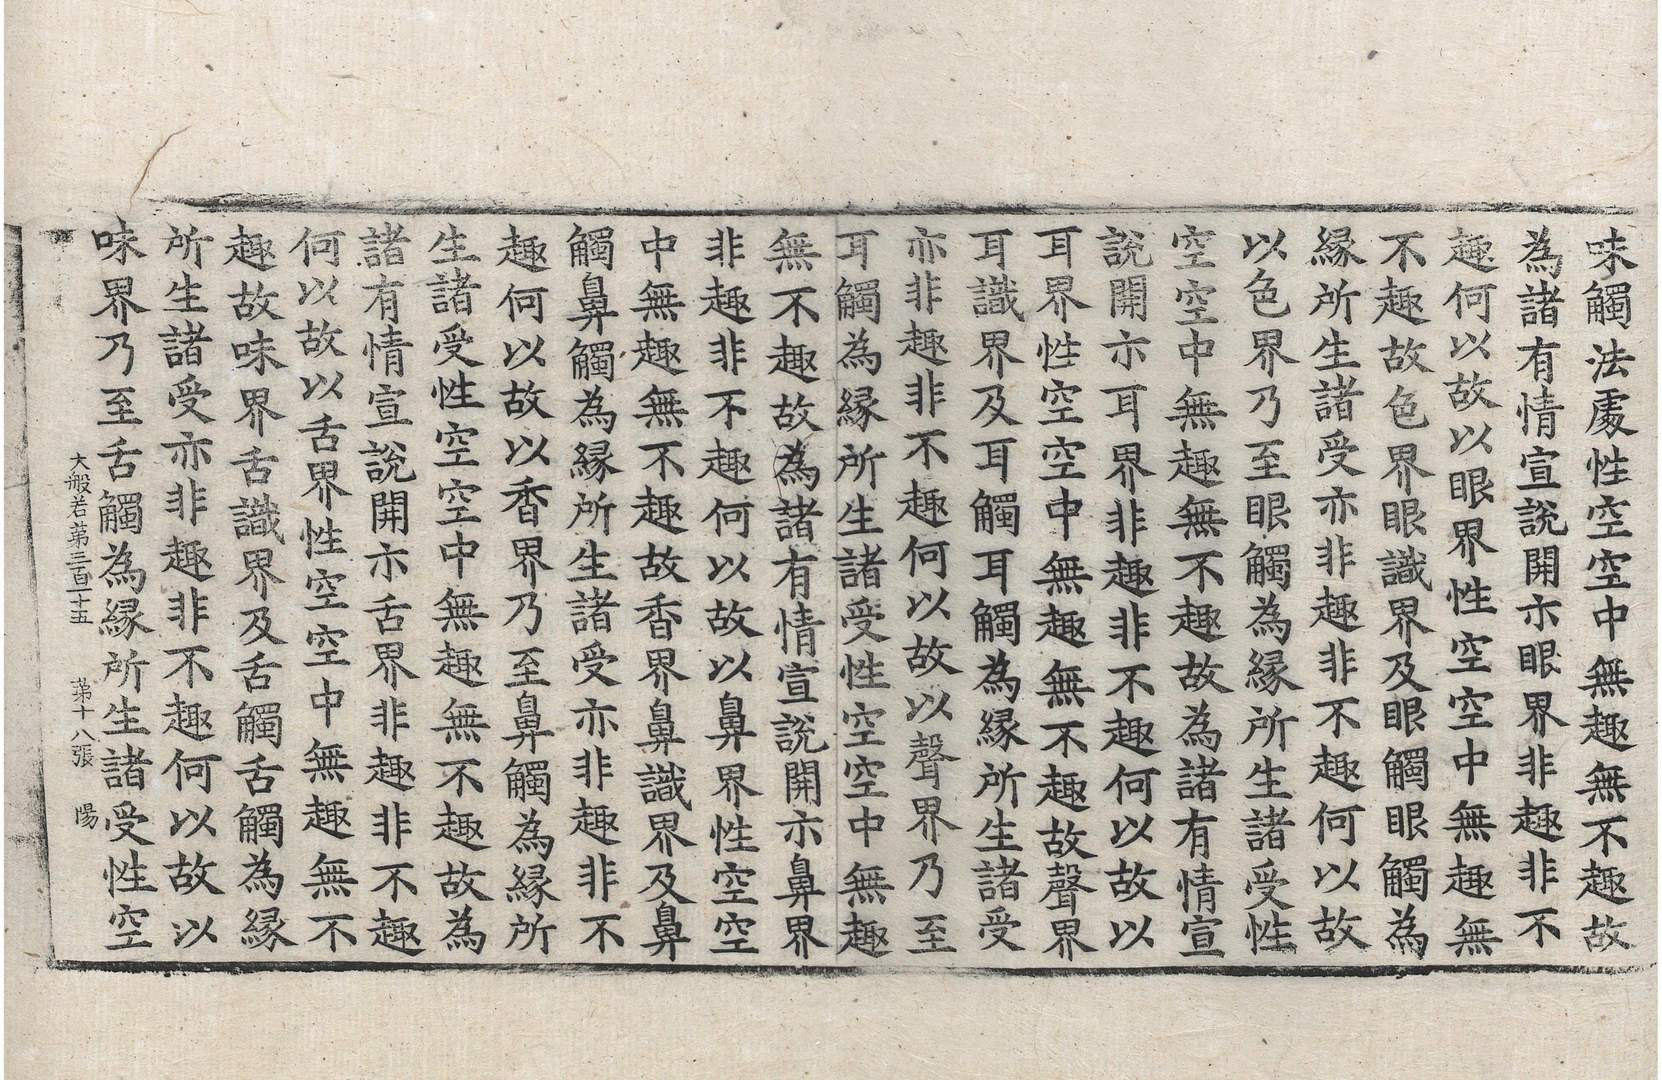 味觸法處性空空中無趣無不趣故
為諸有情宣說開示眼界非趣非不
趣何以故以眼界性空空中無趣無
不趣故色界眼識界及眼觸眼觸為
緣所生諸受亦非趣非不趣何以故
以色界乃至眼觸為緣所生諸受性
空空中無趣無不趣故為諸有情宣
說開示耳界非趣非不趣何以故以
耳界性空空中無趣無不趣故聲界
耳識界及耳觸耳觸為緣所生諸受
亦非趣非不趣何以故以聲界乃至
耳觸為緣所生諸受性空空中無趣
無不趣故為諸有情宣說開示鼻界
非趣非不趣何以故以鼻界性空空
中無趣無不趣故香界鼻識界及鼻
觸鼻觸為緣所生諸受亦非趣非不
趣何以故以香界乃至鼻觸為緣所
生諸受性空空中無趣無不趣故為
諸有情宣說開示舌界非趣非不趣
何以故以舌界性空空中無趣無不
趣故味界舌識界及舌觸舌觸為緣
所生諸受亦非趣非不趣何以故以
味界乃至舌觸為緣所生諸受性空
大般若苐三百一十五 苐十八張 陽